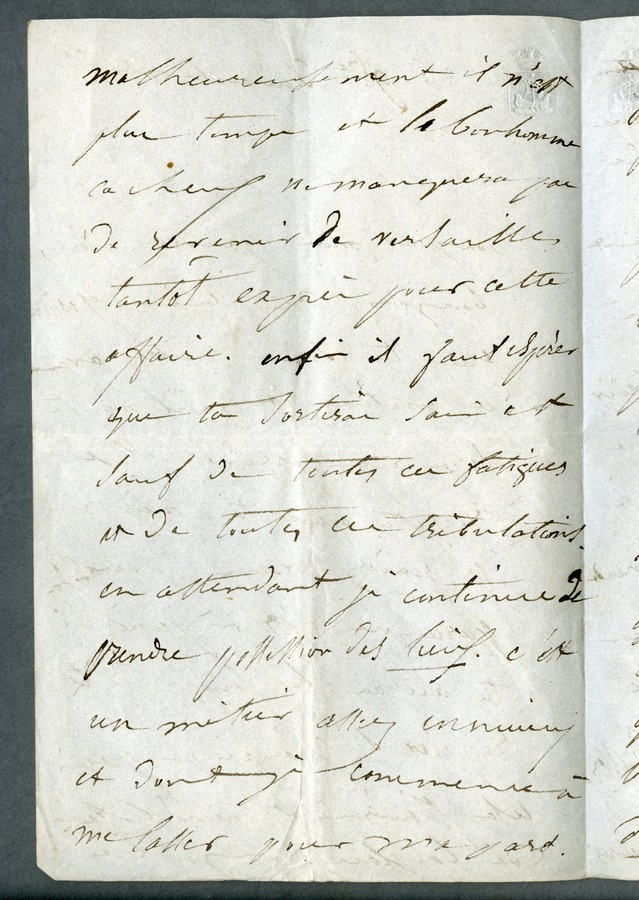 malheureusement il n'est
plus temps et le bonhomme
cacheux ne manquera pas
de revenir de versailles
tantôt exprès pour cette
affaire. enfin il faut espérer
que tu sortiras sain et
sauf de toutes ces fatigues
et de toutes ces tribulations.
en attendant je continue de
prendre possession des lieux. c'est
un métier assez ennuieux
et dont je commence à
me lasser pour ma part.